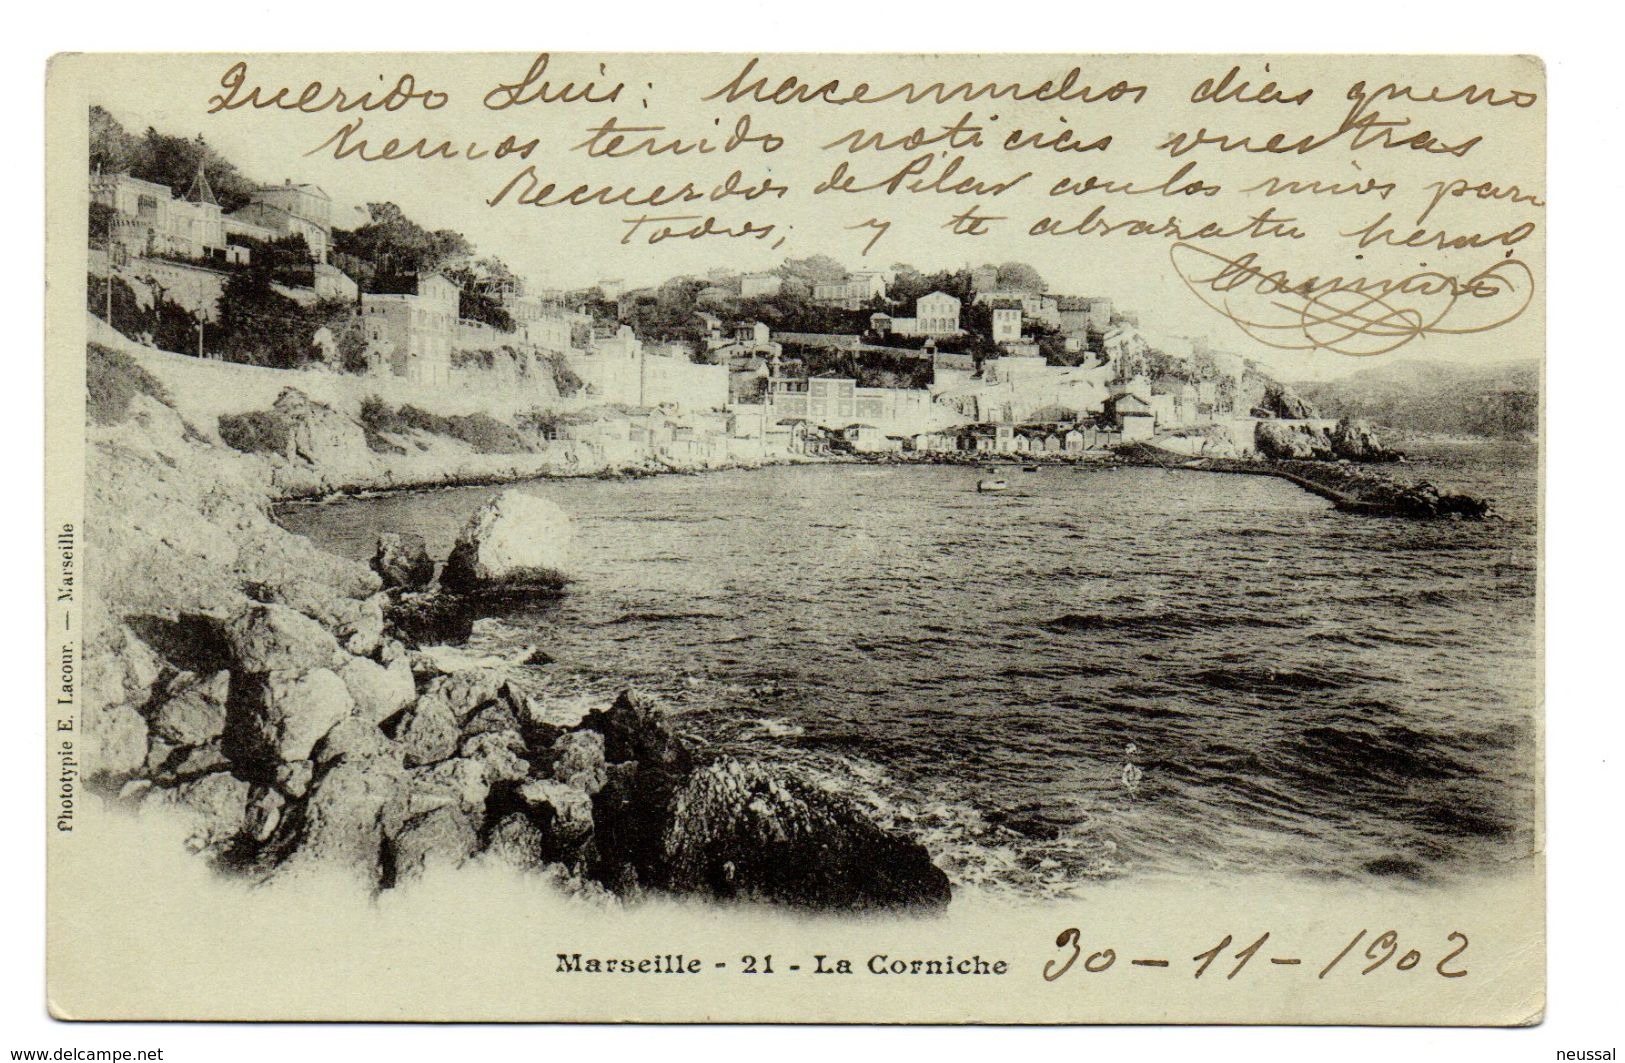 Querido Luis: hace muchos dias que no
hemos tenido noticias vuestras
Recuerdos de Pilar con los mios para
Todos; y te abraza tu herno
Casimiro
Phototypie E. Lacour. — Marseille
Marseille - 21 - La Corniche
30-11-1902
www.delcampe.net
neussal